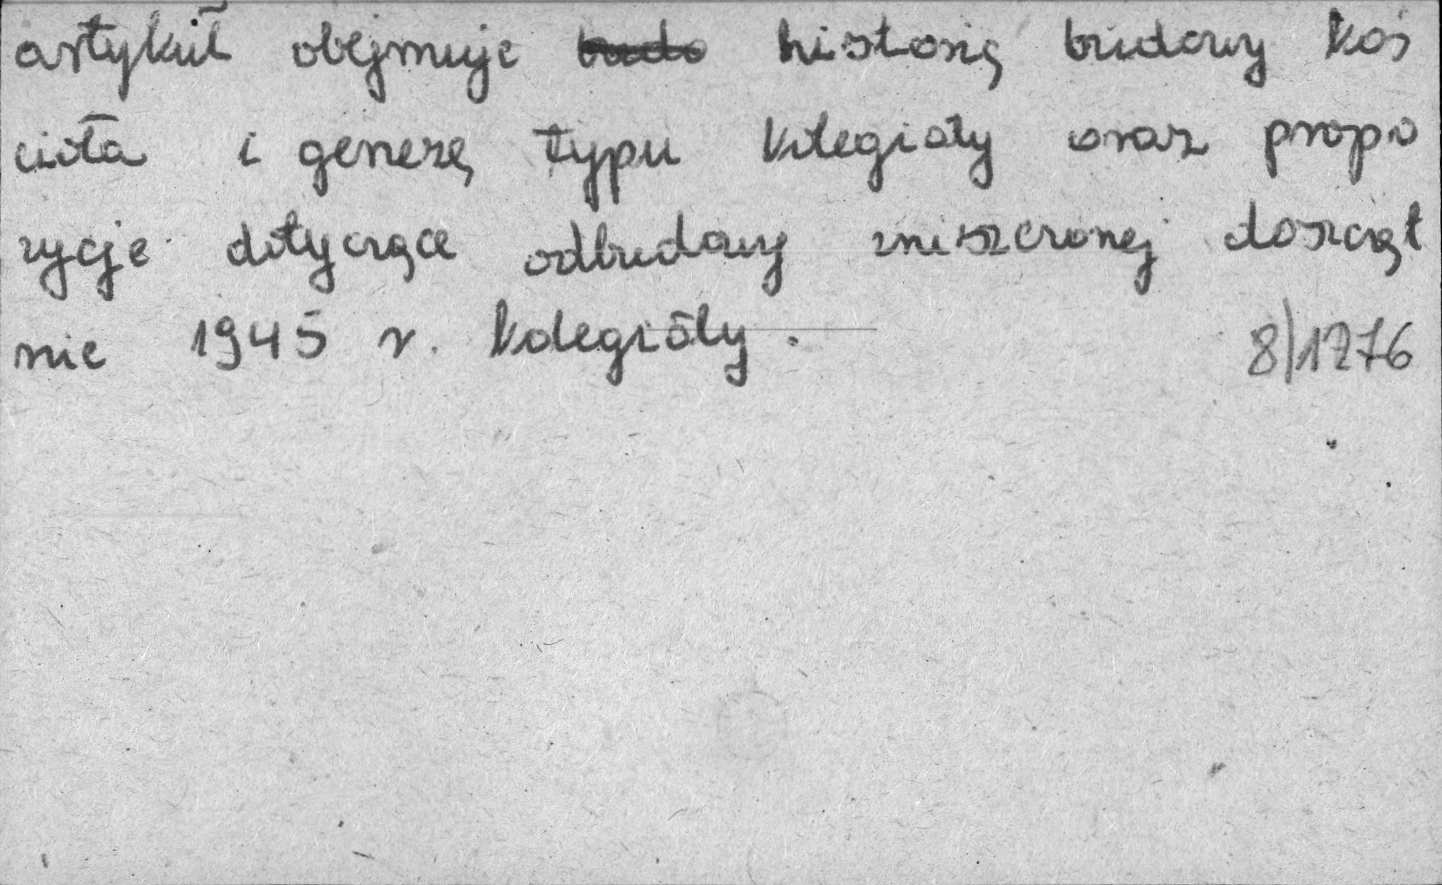 artykuł obejmuje budo historię budowy koś
cioła i genezę typu kolegiaty oraz propo
zycje dotyczące odbudowy zniszczonej doszczęt
nie 1945 r. kolegiaty.
8/1276